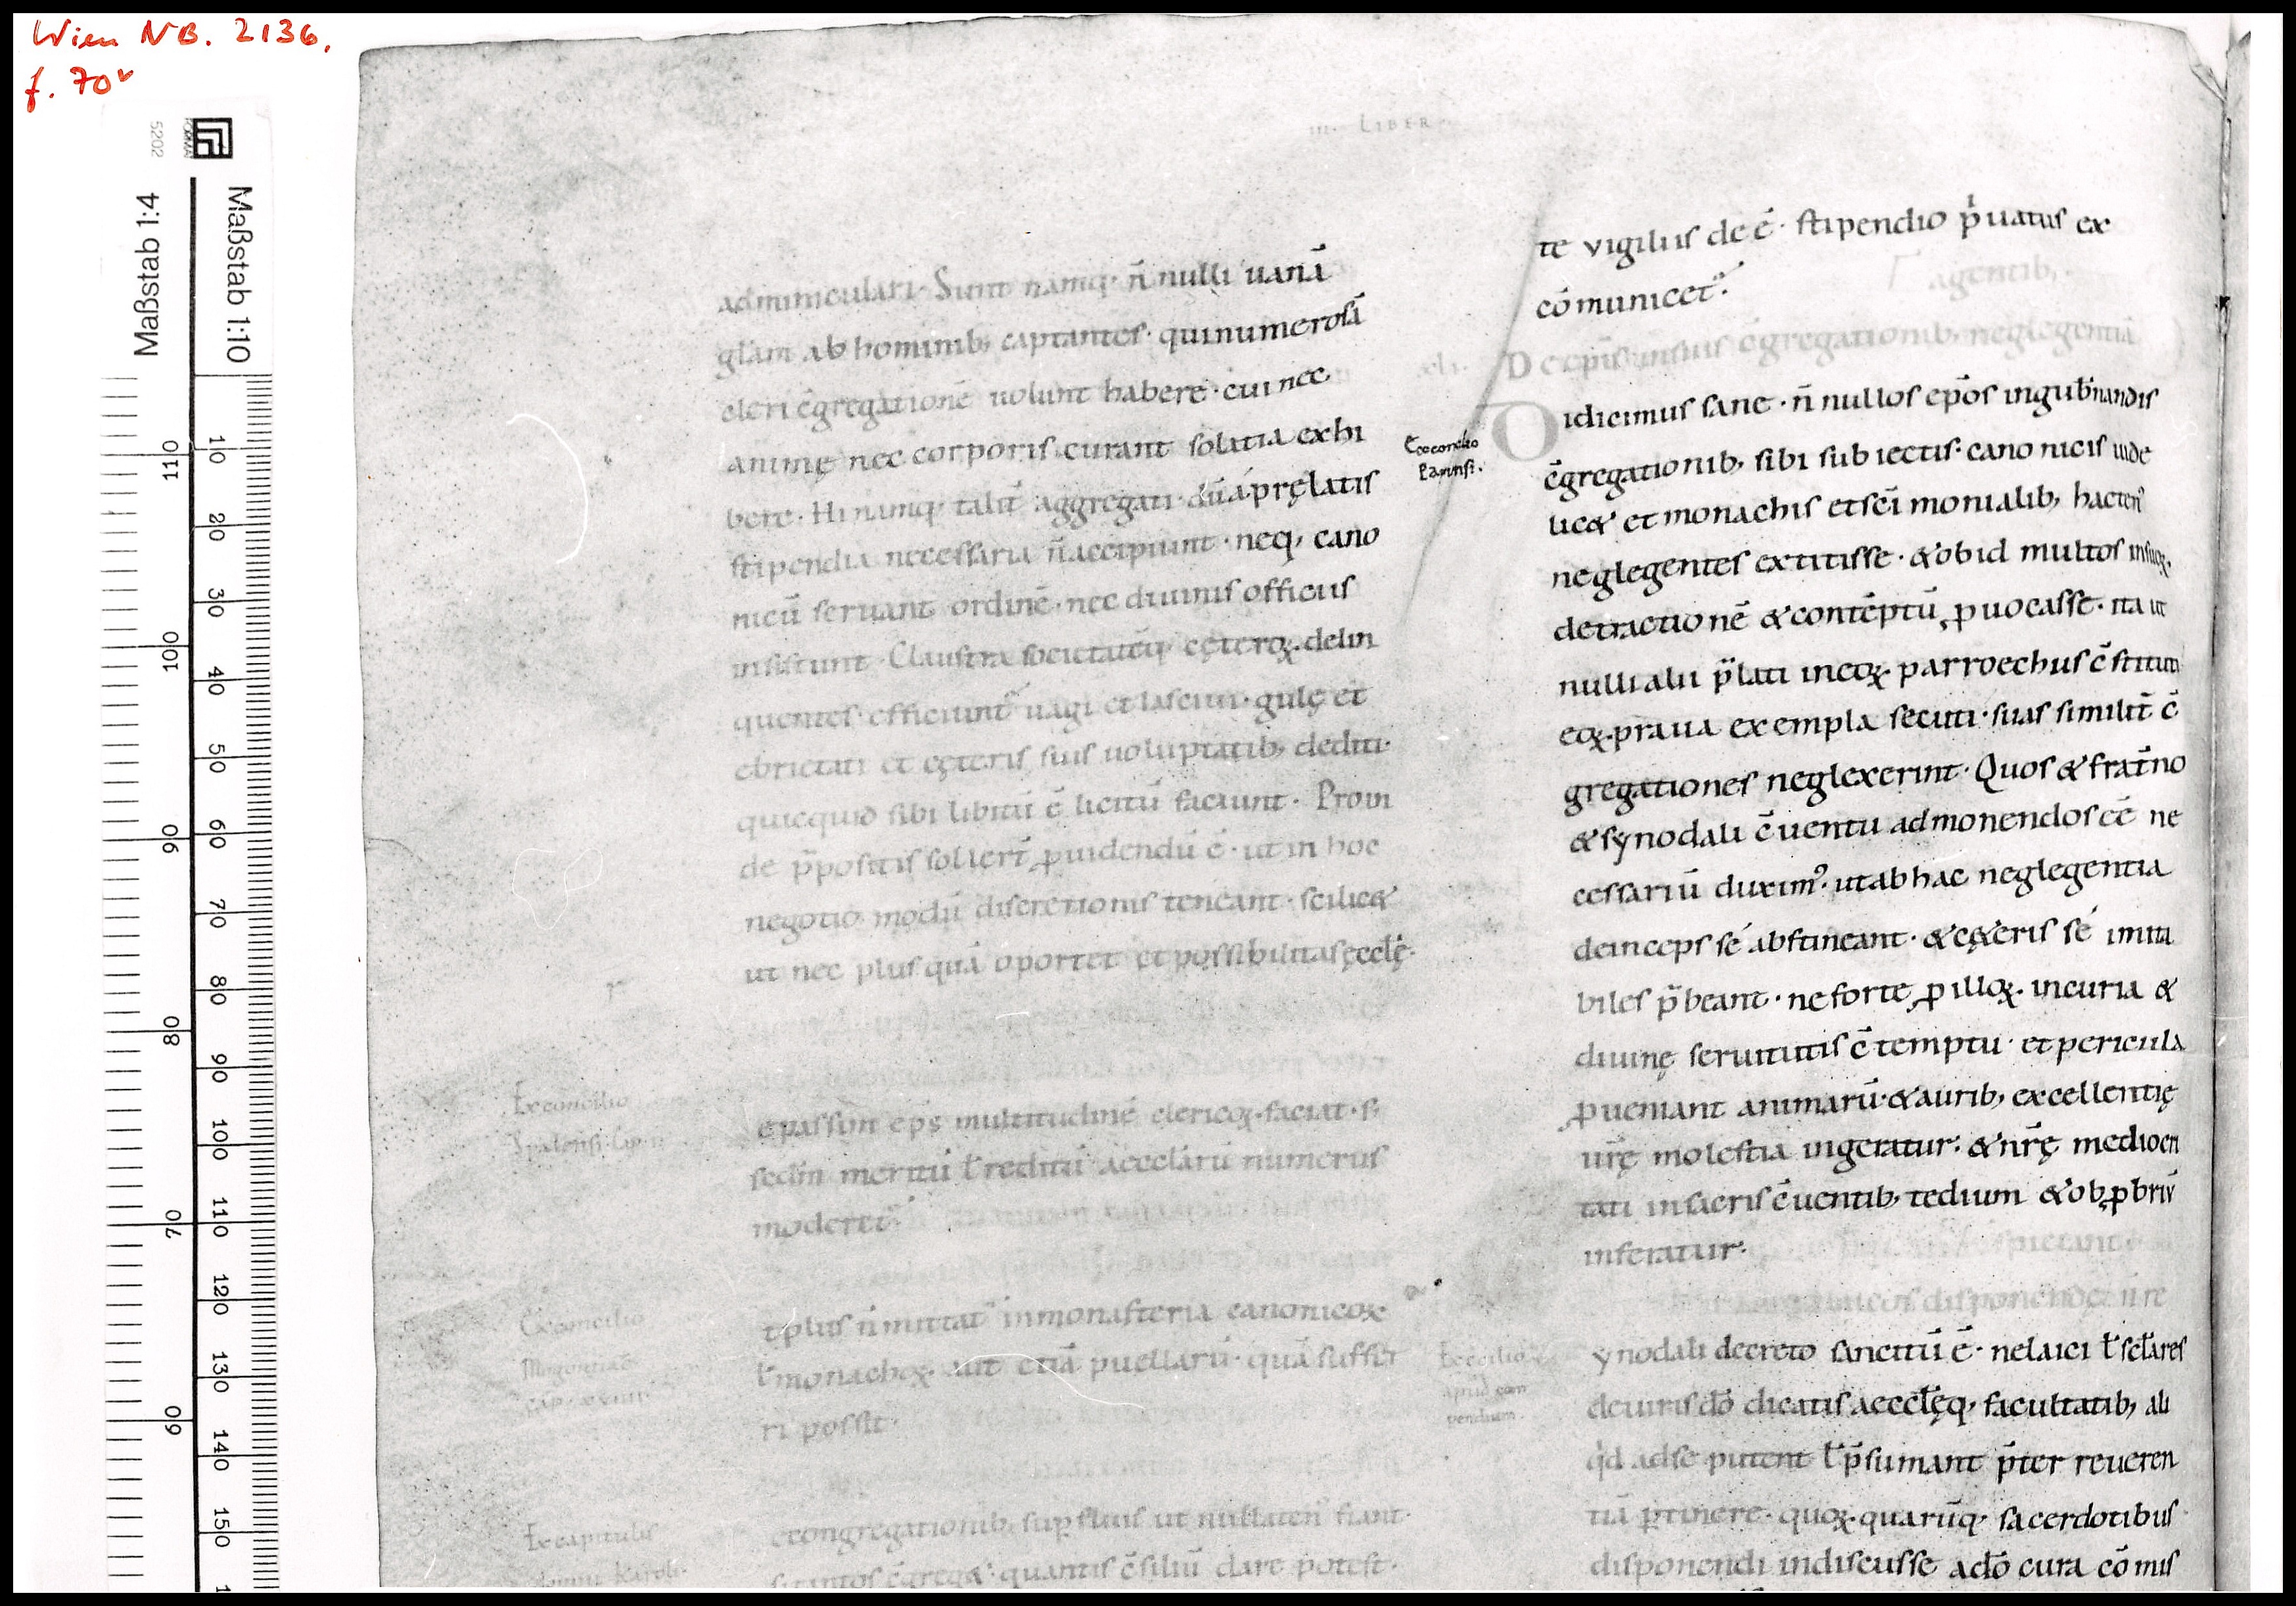 Wien NB. 2136,
f. 70v
Maßstab 1:4
Maßstab 1:10
5202
110 100 90 80 70 60
10 20 30 40 50 60 70 80 90 100 110 120 130 140 150
III. LIBER
adminiculari· Sunt namq· n̄ nulli uanā
glam ab hominib; captantes· qui numerosā
cleri c̄gregationē uolunt habere· cui nec
animę nec corporis curant solatia exhi
bere· Hi namq· talit̄ aggregati· dū a pręlatis
stipendia necessaria n̄ accipiunt· neq; cano
nicū seruant ordinē· nec diuinis officiis
insistunt· Claustra
quentes· efficiunt᷑ uagi et lasciui· gulę et
ebrietati et cęteris suis uoluptatib; dediti·
quicquid sibi libitū ē licitū faciunt· Proin
de p̄positis sollert̄ ꝓuidendū ē· ut in hoc
negotio modū discretionis teneant· scilic&
ut nec plus quā oportet et possibilitas ęcclę·
Ex concilio
passim ep̄s multitudinē clericoꝝ· faciat· s;
sed̄m meritū ł reditū aecclarū numerus
moderet᷑
Ex concilio
plus n̄ mittat᷑ in monasteria canonicoꝝ
ł monachoꝝ· aut etiā puellarū· quā suffer
ri possit·
Ex capitulis
domni Karoli·
congregationib; supfluis ut nullaten᷒ fiant·
tantos c̄greg&· quantis c̄siliū dare potest·
te vigiliis dee᷒· stipendio p̍uatus ex
cōmunicet᷑·
agentib;·
xli· De ep̄is in suis c̄gregationib; neglegentiā
Ex concilio
Parinsi·
Didicimus sane· n̄ nullos ep̄os in gub̄nandis
c̄gregationib; sibi subiectis· canonicis uide
lic& et monachis et sc̄i monialib; hacten᷒
neglegentes extitisse· & ob id multos in suoꝝ·
detractionē & contēptū ꝓuocasse· ita ut
nulli alii p̄lati in eoꝝ· parroechiis c̄stituti
eoꝝ· praua exempla secuti· suas similit̄ c̄
gregationes neglexerint· Quos & frat̄no
& synodali c̄uentu admonendos ee᷒ ne
cessariū duxim᷒· ut ab hac neglegentia
deinceps se abstineant· & cę&eris se imita
biles p̄beant· ne forte ꝑ illoꝝ· incuria &
diuinę seruitutis c̄temptu· et pericula
ꝓueniant animarū· & aurib; excellentię
ur̄ę molestia ingeratur· & nr̄ę medioc̍
tati in sacris c̄uentib; tedium & obꝓbriū
inferatur·
disponendę n̄ re
ynodali decreto sancitū ē· ne laici ł sc̄lares
de uiris dō dicatis aecclęq; facultatib; ali
q̍d ad se putent ł p̄sumant p̄ter reueren
tiā ꝑtinere· quoꝝ· quarūq· sacerdotibus
disponendi indiscusse a dō cura cōmis